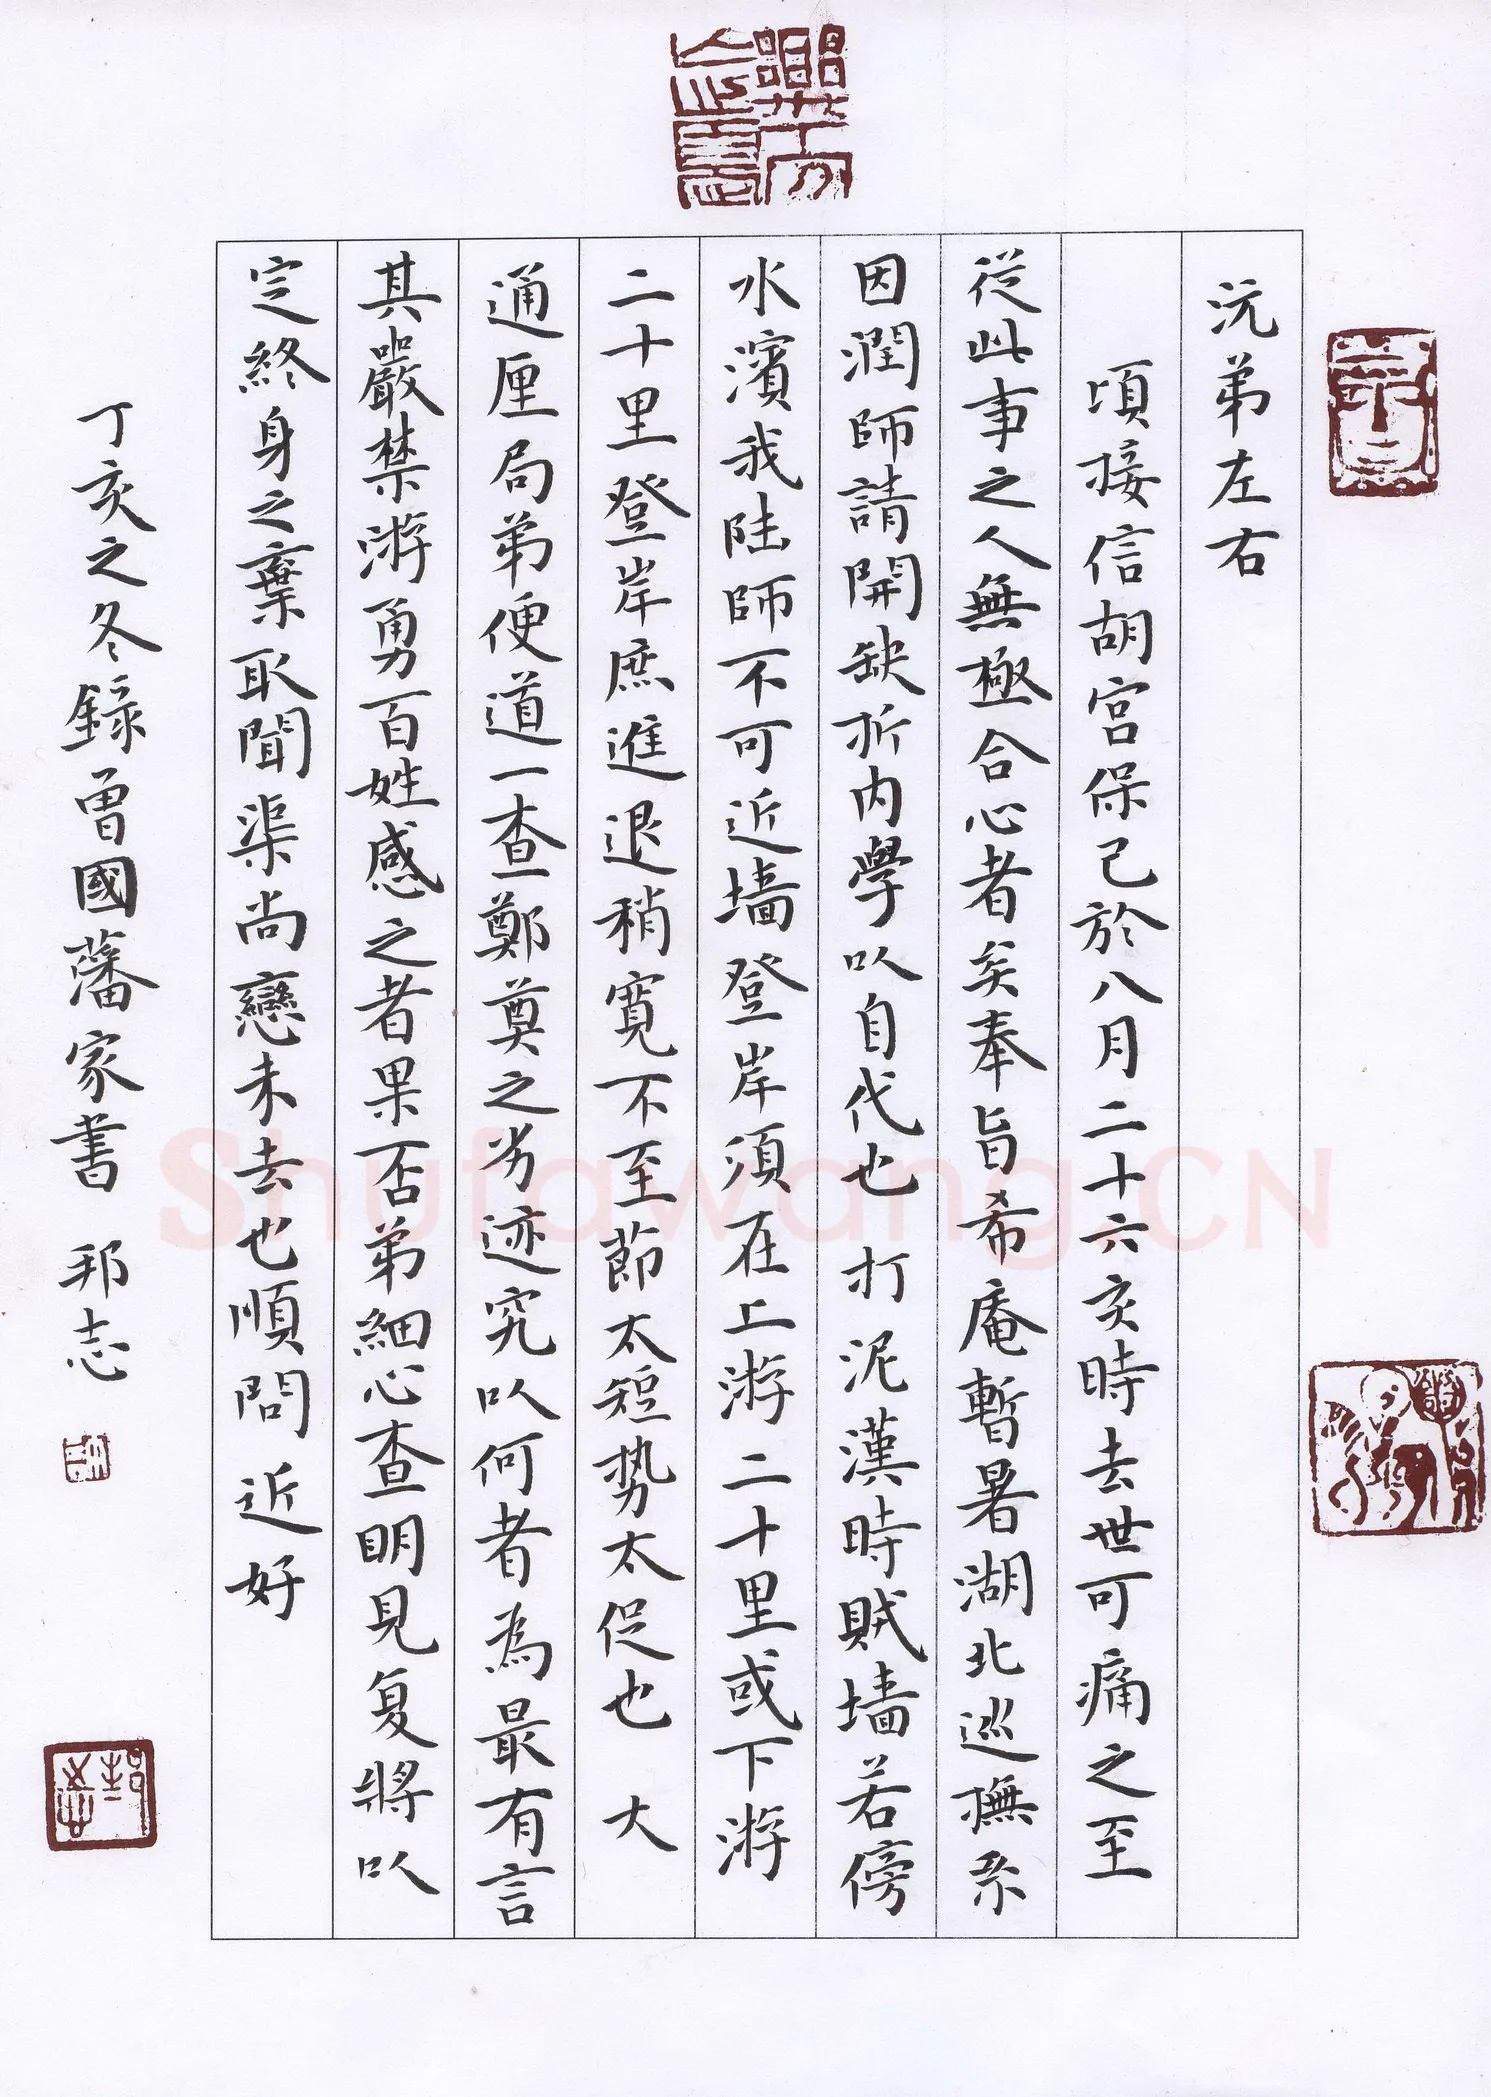 沅弟左右
頃接信胡宮保已於八月二十六亥時去世可痛之至
從此事之人無極合心者矣奉旨希庵暫署湖北巡撫系
因潤師請開缺折内學以自代也 打泥漢時賊墙若傍
水濱我陆師不可近墙登岸須在上游二十里或下游
二十里登岸庶進退稍寬不至節太短势太促也 大
通厘局弟便道一查鄭奠之劣迹究以何者為最有言
其嚴禁游勇百姓感之者果否弟細心查明見复將以
定終身之棄取聞渠尚戀未去也順問 近好
丁亥之冬錄曾國藩家書 邦志
Shufawang.CN